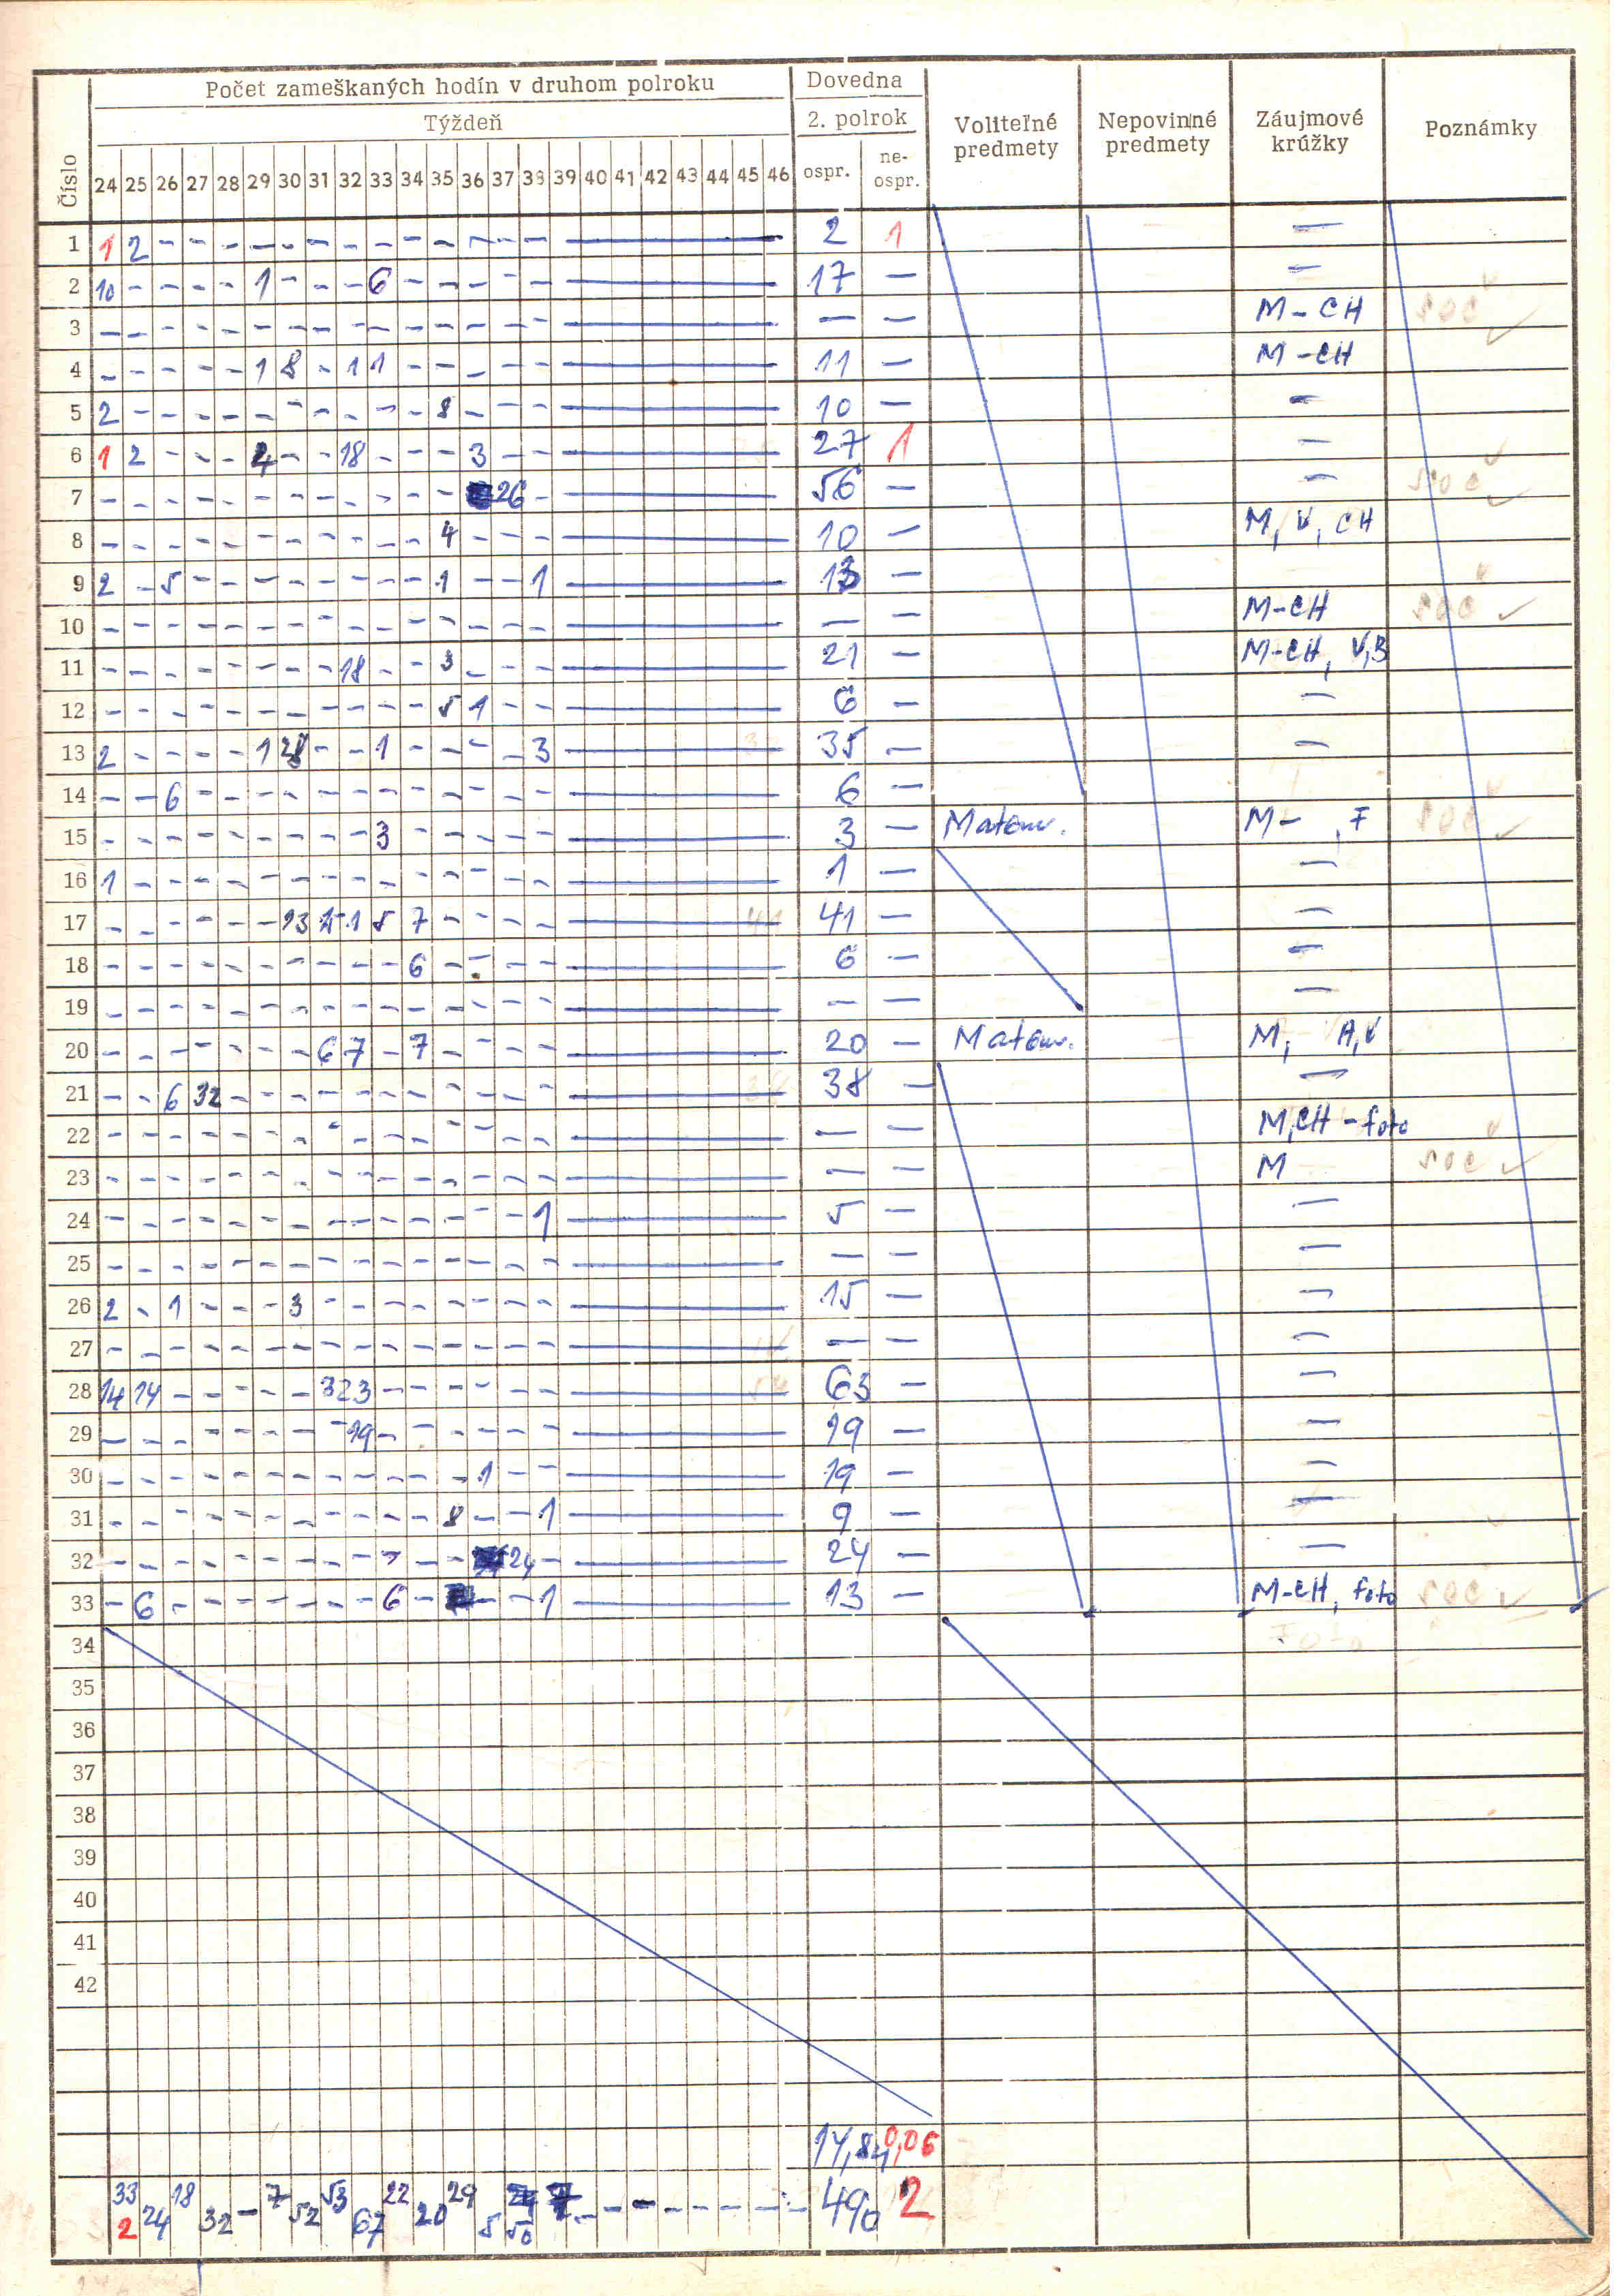 Počet zameškaných hodín v druhom polroku Dovedna
Týždeň 2. polrok
Číslo 24 25 26 27 28 29 30 31 32 33 34 35 36 37 38 39 40 41 42 43 44 45 46 ospr. ne-ospr. Voliteľné predmety Nepovinné predmety Záujmové krúžky Poznámky
1 1 2 - - - - - - - - - - - - - 2 1 -
2 10 - - - - 1 - - - 6 - - - - - 17 - -
3 - - - - - - - - - - - - - - - - - M - CH SOČ
4 - - - - - 1 8 - 1 1 - - - - - 11 - M - CH
5 2 - - - - - - - - - - 8 - - - 10 - -
6 1 2 - - - 4 - - 18 - - - 3 - - 27 1 -
7 - - - - - - - - - - - - 26 - 56 - - SOČ
8 - - - - - - - - - - - 4 - - - 10 - M, V, CH
9 2 - 5 - - - - - - - - 1 - - 1 13 -
10 - - - - - - - - - - - - - - - - - M-CH SOČ
11 - - - - - - - - 18 - - 3 - - - 21 - M-CH, V,B
12 - - - - - - - - - - - 5 1 - - 6 - -
13 2 - - - - 1 28 - - 1 - - - - 3 35 - -
14 - - 6 - - - - - - - - - - - - 6 -
15 - - - - - - - - - 3 - - - - - 3 - Matem. M - , F SOČ
16 1 - - - - - - - - - - - - - - 1 - -
17 - - - - - - 13 15 1 5 7 - - - - 41 - -
18 - - - - - - - - - - 6 - - - - 6 - -
19 - - - - - - - - - - - - - - - - - -
20 - - - - - - - 6 7 - 7 - - - - 20 - Matem. M, A,V
21 - - 6 32 - - - - - - - - - - - 38 - -
22 - - - - - - - - - - - - - - - - - M,CH - foto
23 - - - - - - - - - - - - - - - - - M SOČ
24 - - - - - - - - - - - - - - 1 5 - -
25 - - - - - - - - - - - - - - - - - -
26 2 - 1 - - - 3 - - - - - - - - 15 - -
27 - - - - - - - - - - - - - - - - - -
28 14 14 - - - - - 3 23 - - - - - - 63 - -
29 - - - - - - - - 19 - - - - - - 19 - -
30 - - - - - - - - - - - - 1 - - 19 - -
31 - - - - - - - - - - - 8 - - 1 9 - -
32 - - - - - - - - - - - - 24 - 24 - -
33 - 6 - - - - - - - 6 - - - 1 13 - M-CH, foto SOČ
34 Foto
35
36
37
38
39
40
41
42
14,84 0,06
33 24 18 32 - 7 52 53 67 22 20 29 5 50 - - - - - - - 490 2
2